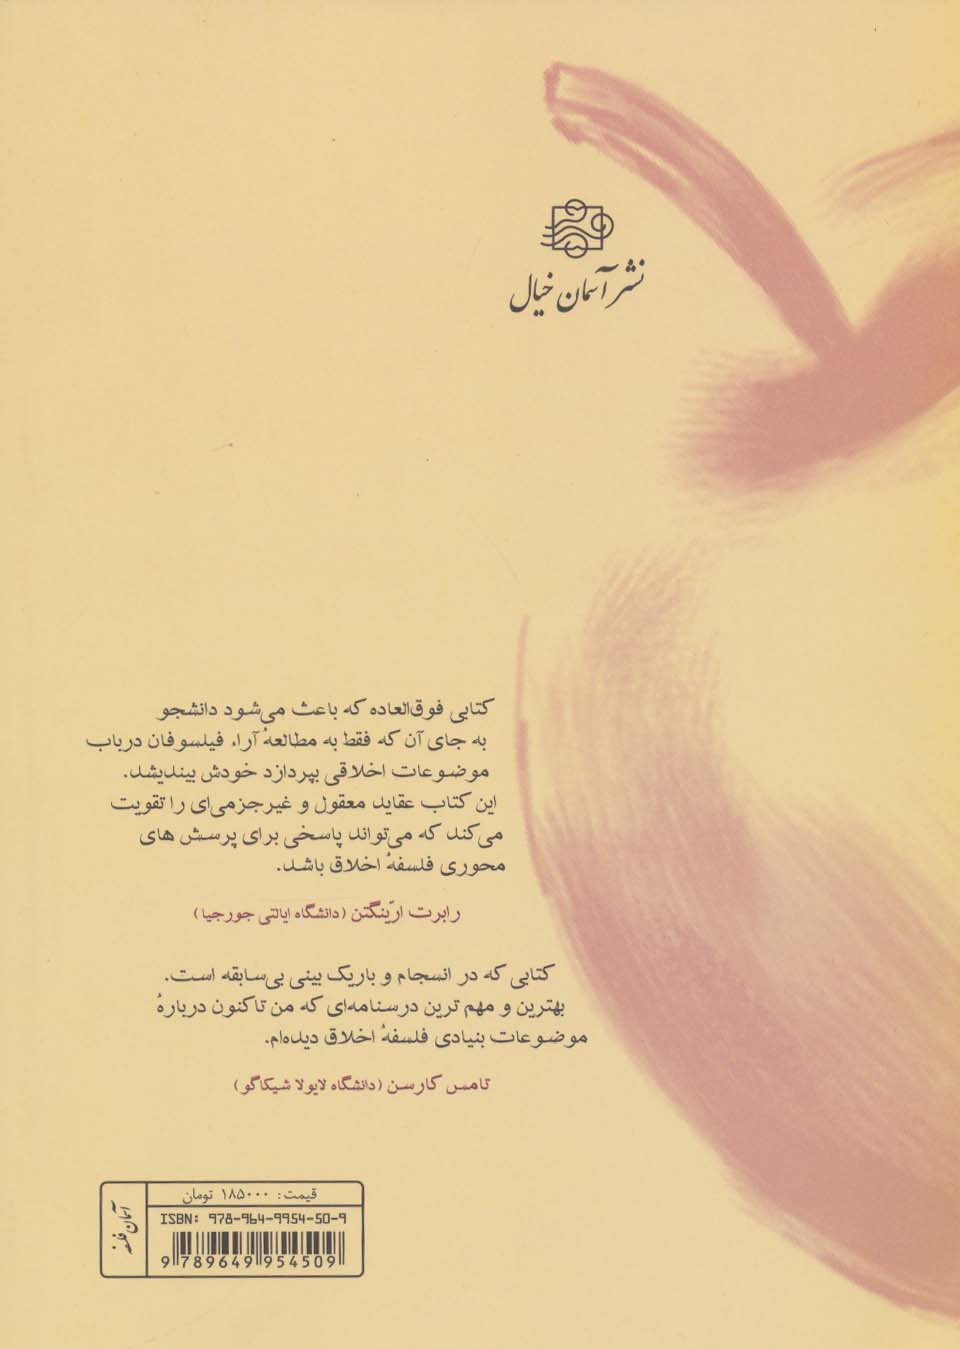 نشر آسمان خیال
کتابی فوق‌العاده که باعث می‌شود دانشجو
به جای آن که فقط به مطالعهٔ آراء فیلسوفان درباب
موضوعات اخلاقی بپردازد خودش بیندیشد.
این کتاب عقاید معقول و غیرجزمی‌ای را تقویت
می‌کند که می‌تواند پاسخی برای پرسش های
محوری فلسفهٔ اخلاق باشد.
رابرت ارّینگتن (دانشگاه ایالتی جورجیا)
کتابی که در انسجام و باریک بینی بی‌سابقه است.
بهترین و مهم ترین درسنامه‌ای که من تاکنون دربارهٔ
موضوعات بنیادی فلسفهٔ اخلاق دیده‌ام.
تامس کارسن (دانشگاه لایولا شیکاگو)
قیمت: ۱۸۵۰۰۰ تومان
ISBN: 978-964-9954-50-9
9 789649 954509
آسمان فلسفه